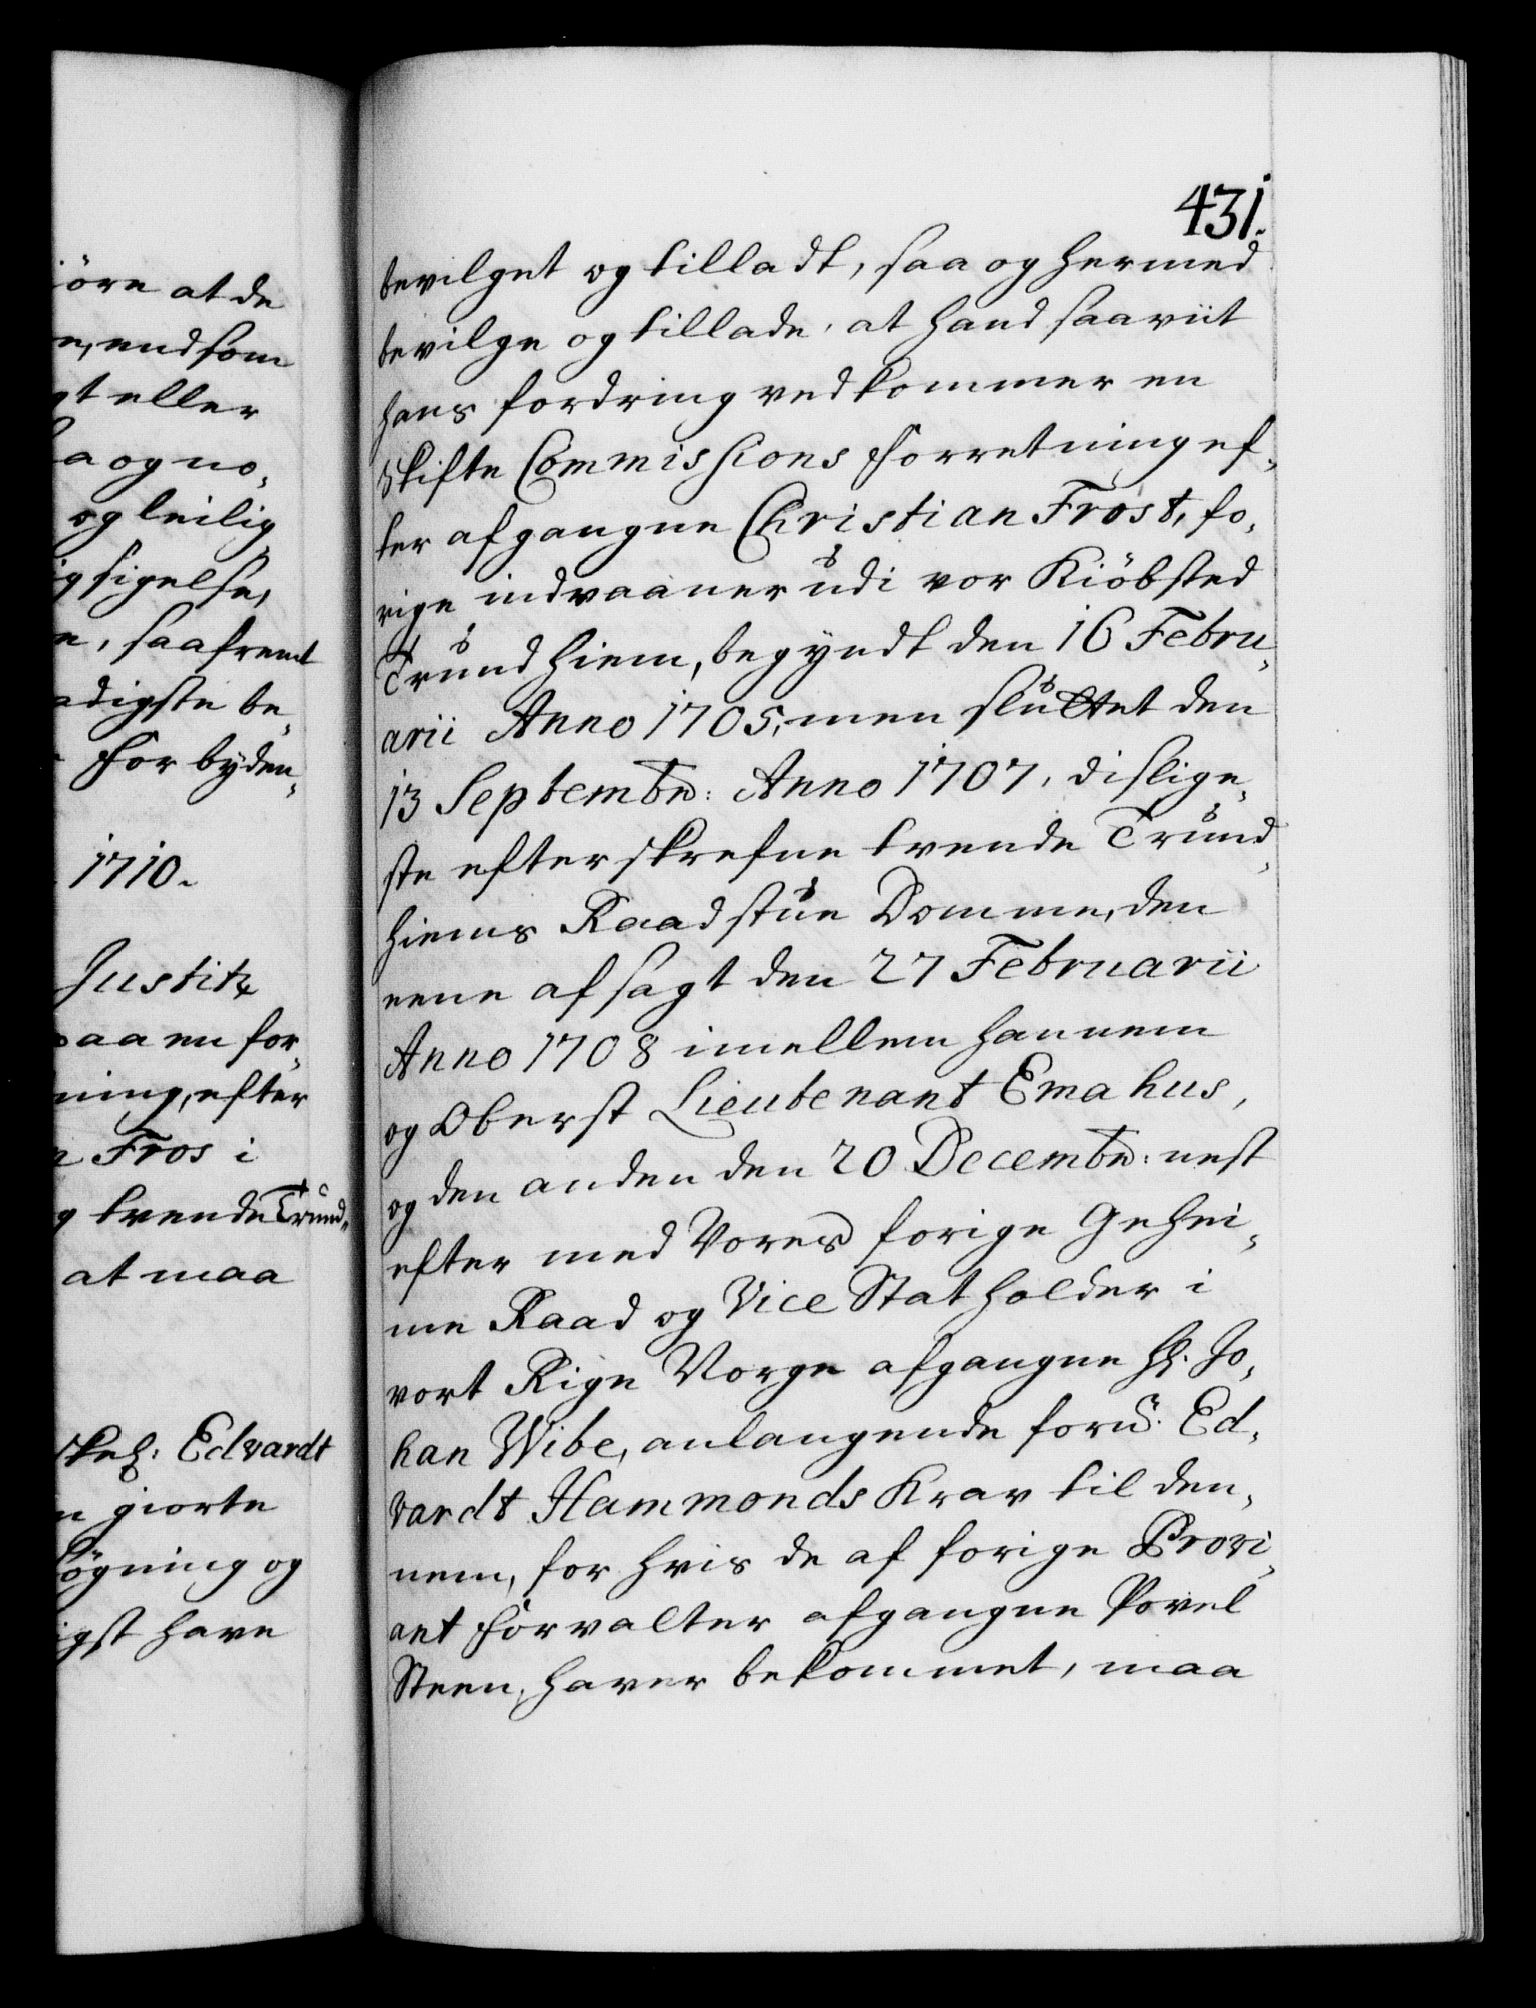 öre at de
n, end som
gt eller
a og no„
og leilig
igsigelse,
n, saafremt
adigste be„
forbyden„
1710.
Justitz
paa en for„
ning, efter
n Fros i
g tvende Trund„
at maa
Edvardt
n giorte
søgning og
igst have
431.
bevilget og tilladt, saa og hermed
bevilge og tillade, at hand saaviit
hans fordring vedkommer en
Skifte Commissions Forretning ef„
ter afgangne Christian Frost, fo„
rige indvaaner udi vor Kiöbsted
Trundhiem, begyndt den 16 Febru„
arii Anno 1705, men sluttet den
13 Septembr: Anno 1707, dislige„
ste efterskrefne tvende Trund„
hiems Raadstue Domme, den
eene afsagt den 27 Februarii
Anno 1708 imellem hannem
og Oberst Lieutenant Emahus,
og den anden den 20 Decembr: nest
efter med Vores forige Gehei„
me Raad og Vice Statholder i
vort Rige Norge afgangne Hr. Jo„
han Wibe, anlangende forn. Ed„
vardt Hammonds Krav til den„
nem, for hvis de af forige Provi„
ant Forvalter afgangne Povel
Steen, haver bekommet, maa